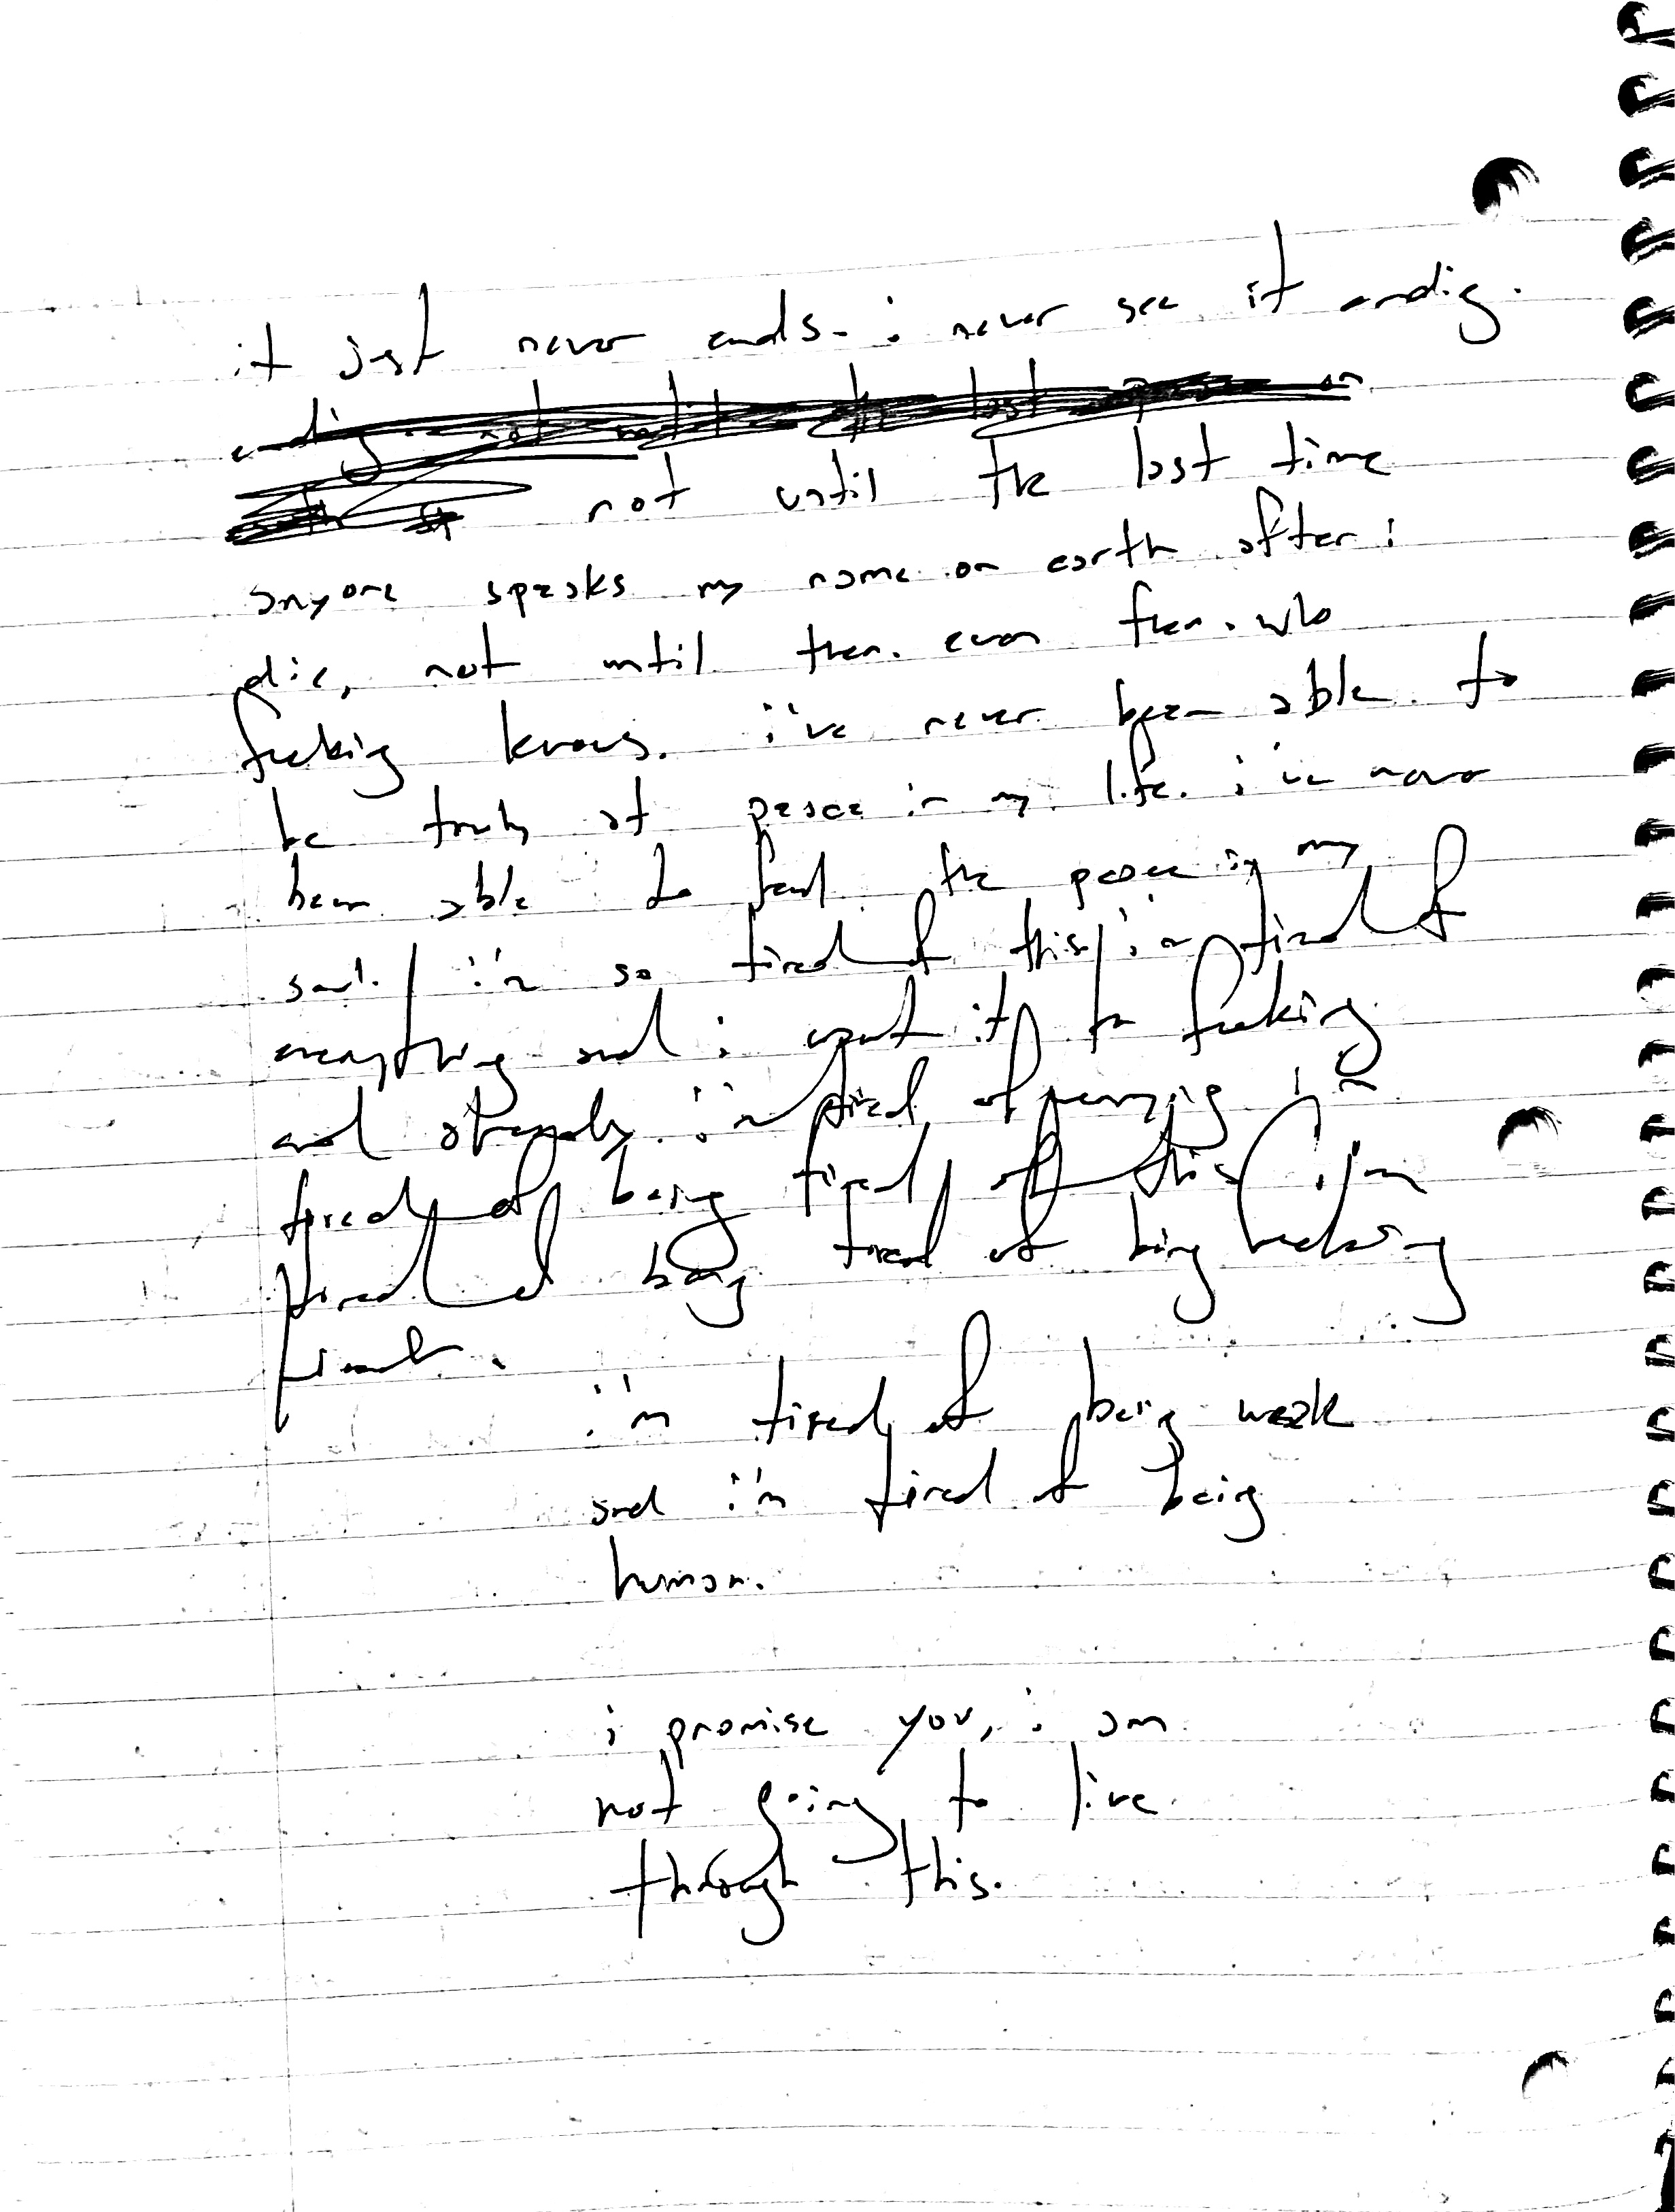 it just never ends. i never see it endig.
not until the last time
anyone speaks my name on earth after i
die, not until then. even then. who
fucking knows. i've never been able to
be truly at peace in my life. i've never
been able to feel the peace in my
soul. i'm so tired of this, i'm tired of
everything and i want it to fucking
end already. i'm tired of
tired of being tired of this i'm
tired of being tired of being fucking
i'm tired of being weak
and i'm tired of beig
human.
i promise you, i am
not going to live
through this.